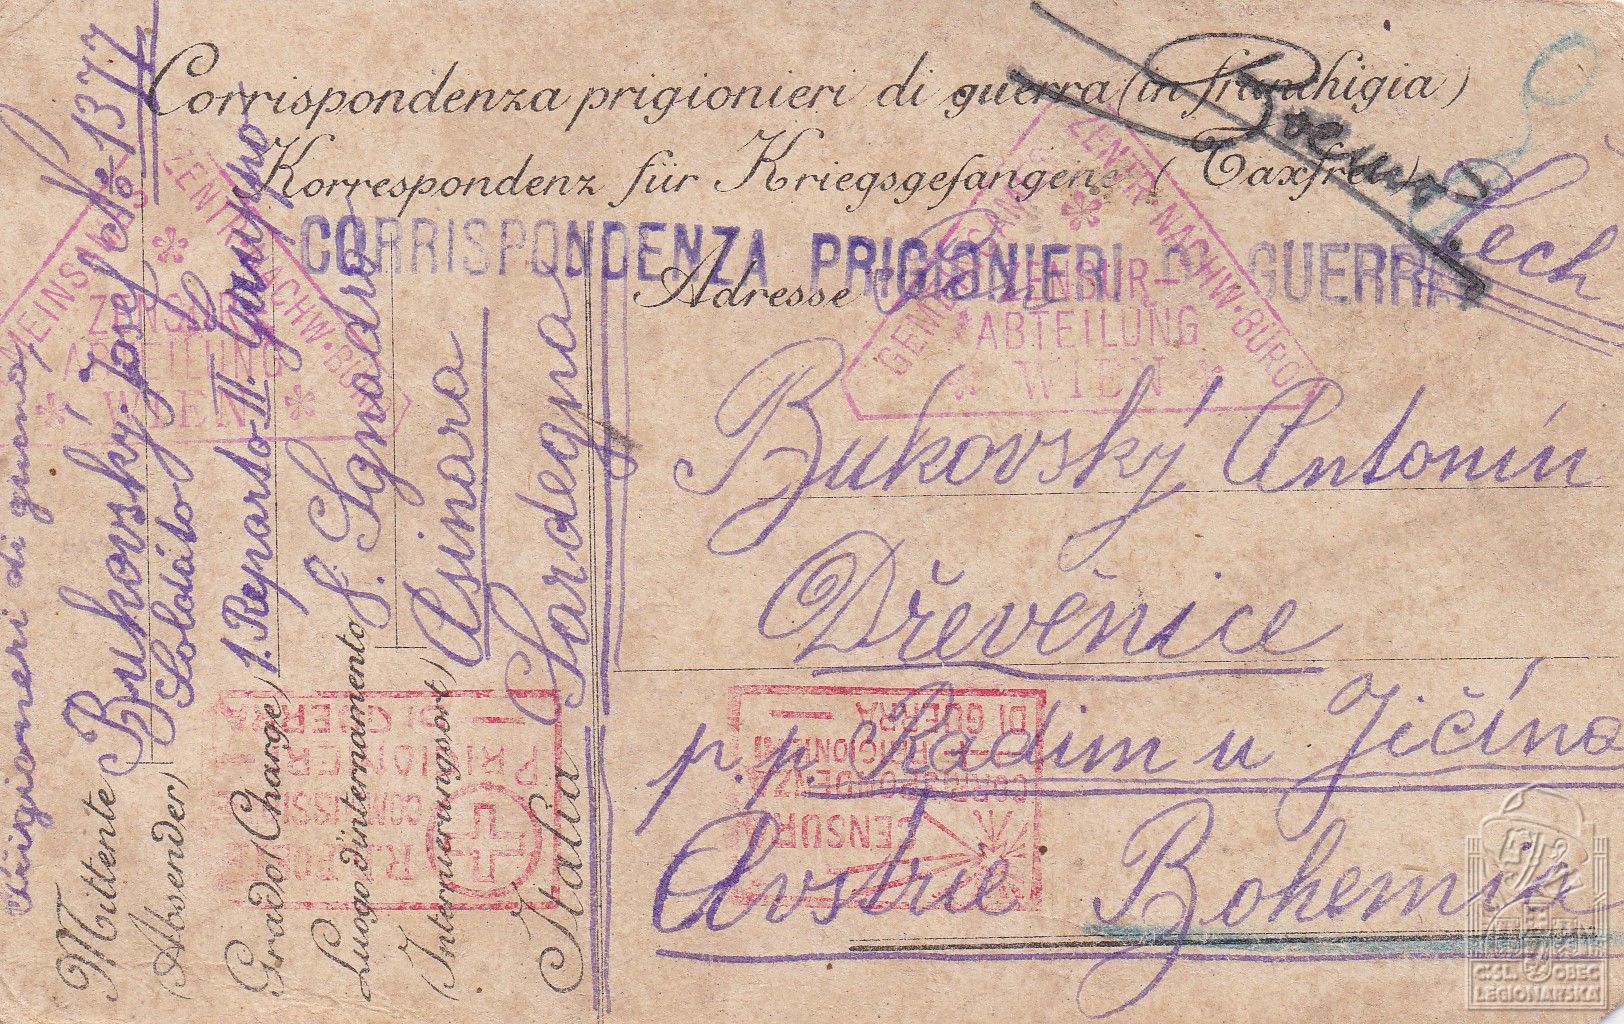 Corrispondenza prigionieri di guerra (in franchigia)
Korrespondenz für Kriegsgefangene (Taxfrei)
CORRISPONDENZA PRIGIONIERI DI GUERRA
Adresse
Čech
Bukovský Antonín
Dřevěnice
p.p. Radim u Jičína
Avstrie Bohemia
Prigionieri di guerra,
Mittente Bukovský Josef No 1377
(Absender) Soldáto
Grado (Charge) 1. Reparto II. Gruppo
Luogo d'internamento S. Ignadro
(Internierungsort) Asinara
Italia Sardegna
GEMEINSAMES ZENTR.-NACHW.-BÜRO
ZENSUR-
ABTEILUNG
WIEN
GEMEINSAMES ZENTR.-NACHW.-BÜRO
ZENSUR-
ABTEILUNG
WIEN
COMMISSIONE
PRIGIONIERI
DI GUERRA
CENSURA
CORRISPONDENZA
PRIGIONIERI
DI GUERRA
ČSL. OBEC
LEGIONÁŘSKÁ